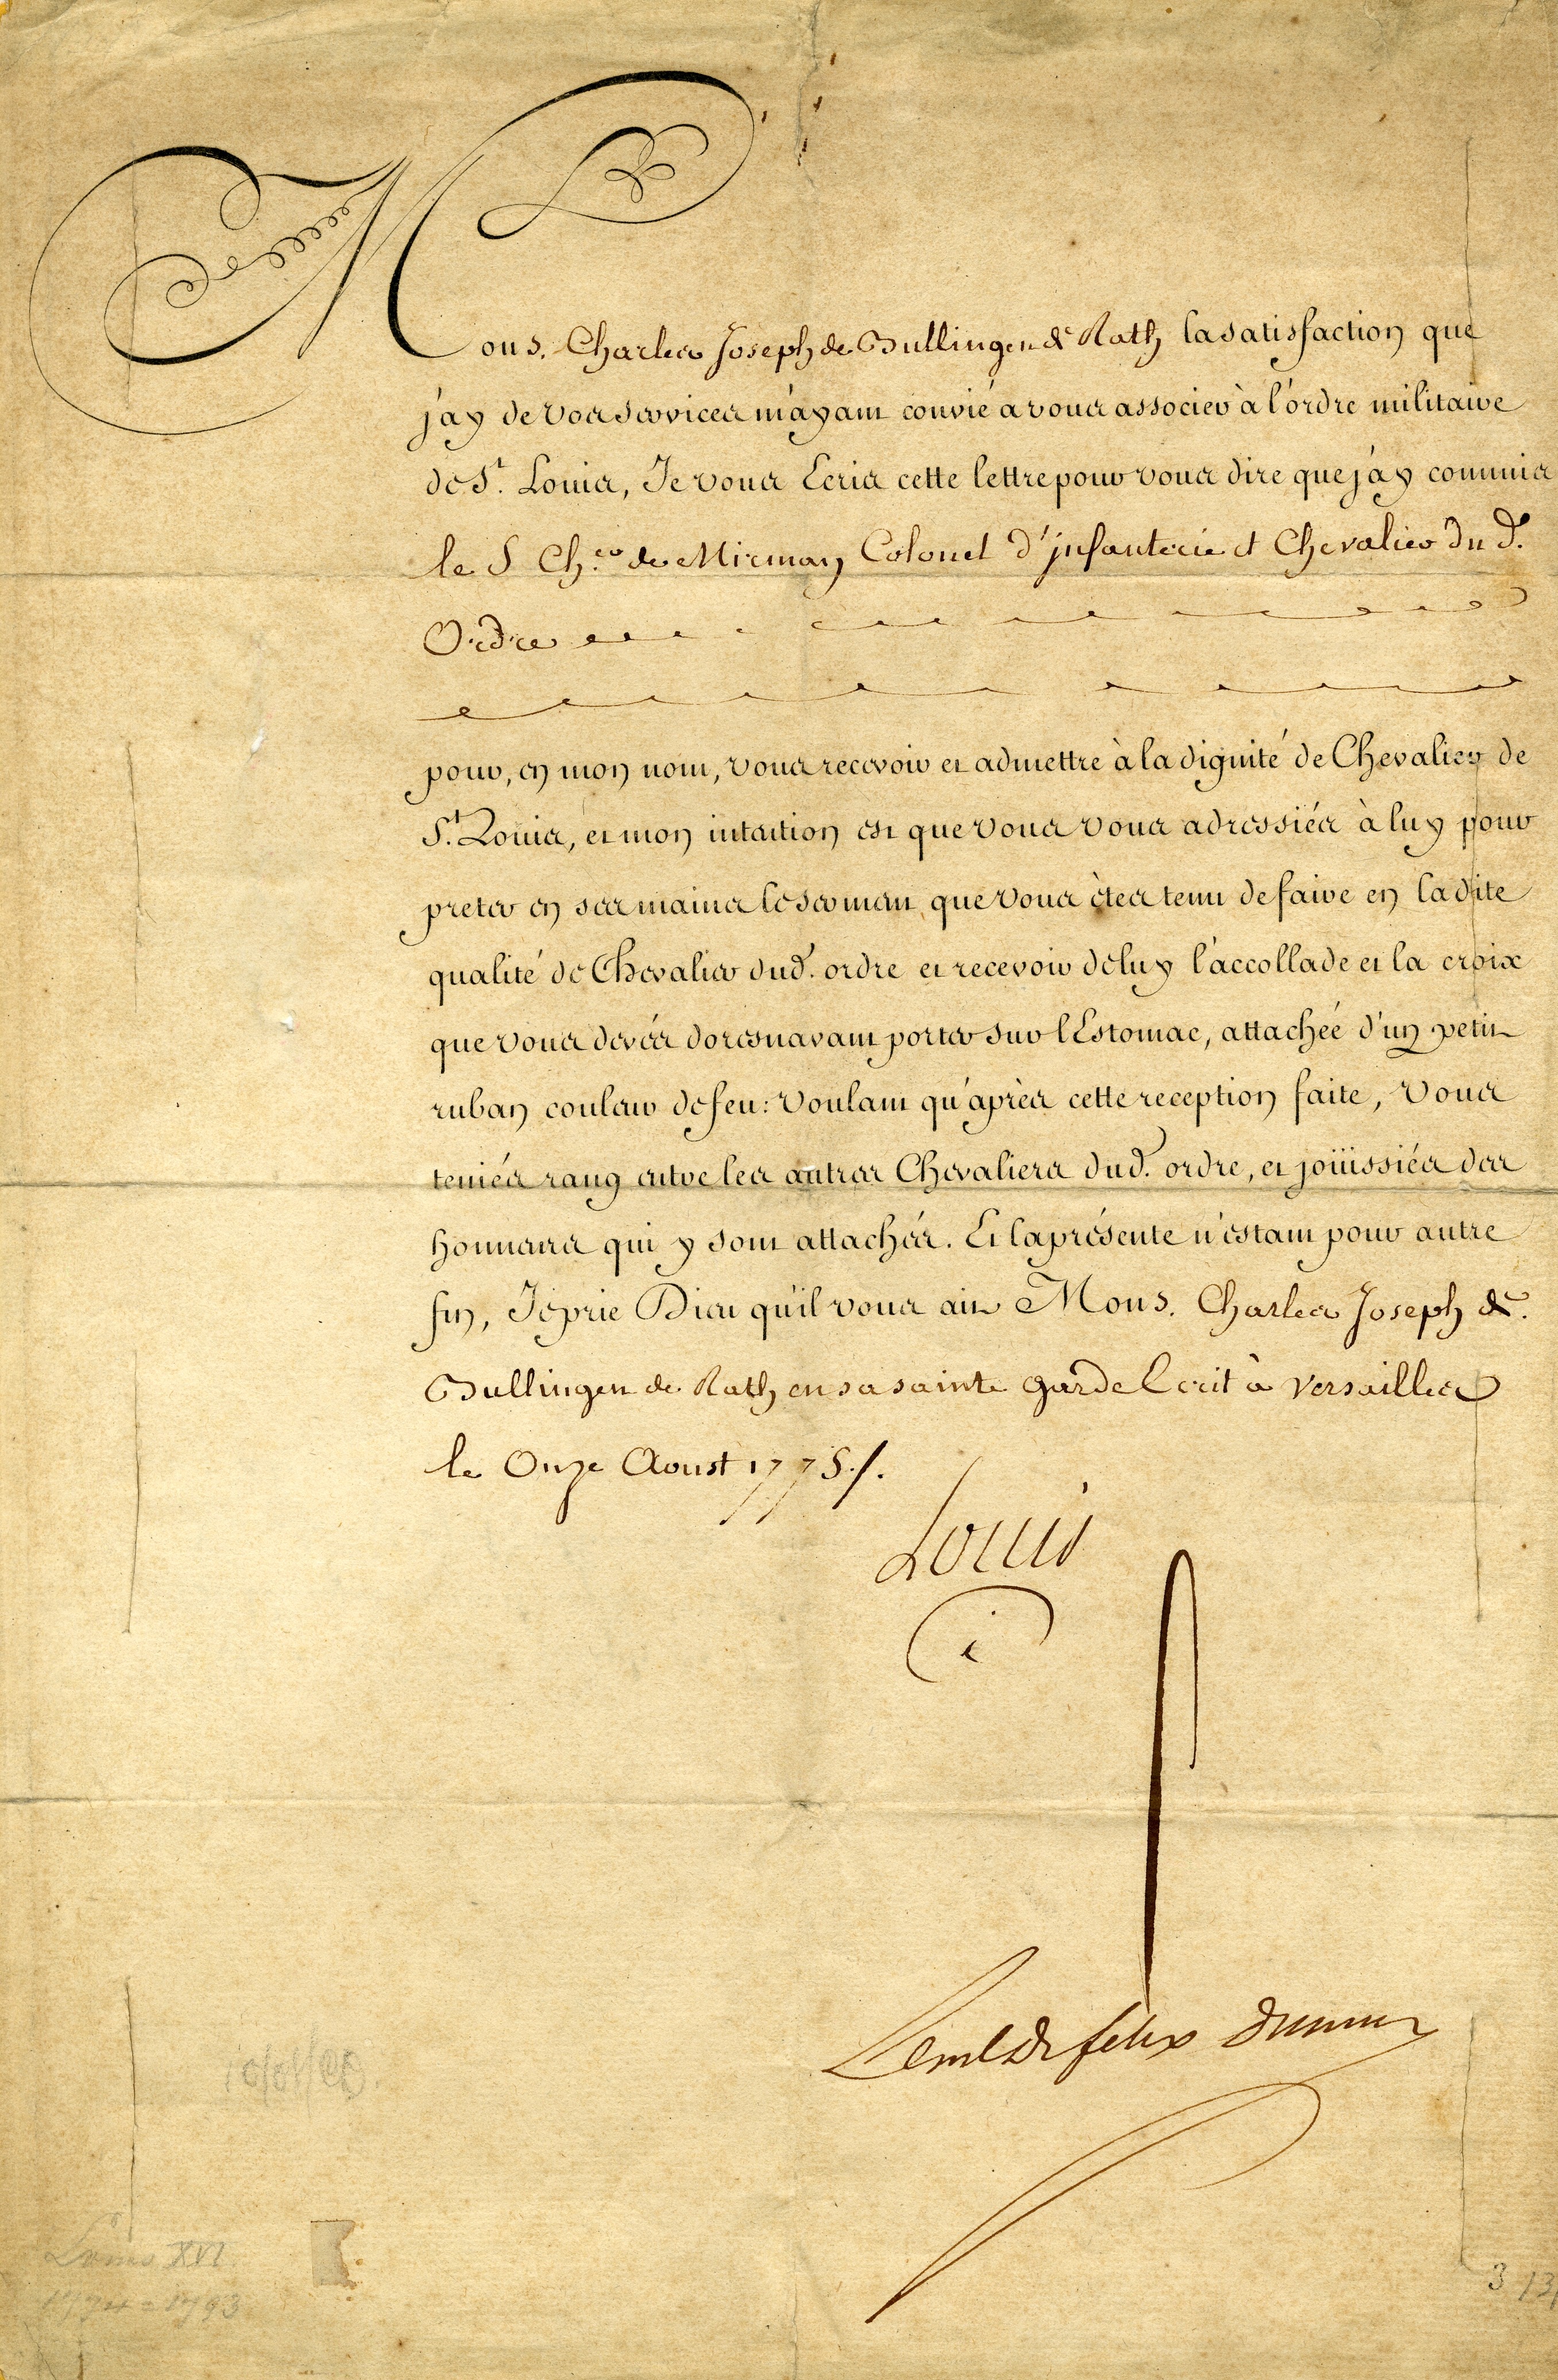 Mons. Charles Joseph de Bullingen de Rath la satisfaction que
j'ay de vos services m'ayant convié a vous associer à l'ordre militaire
de St. Louis, Je vous Ecris cette lettre pour vous dire que j'ay commis
le S Cher de Mirman Colonel d'jnfanterie et Chevalier du d.
Ordre
pour, en mon nom, vous recevoir et admettre à la dignité de Chevalier de
St. Louis, et mon intention est que vous vous adressiés à luy pour
preter en ses mains le serment que vous êtes tenu de faire en la dite
qualité de Chevalier dud. ordre et recevoir de luy l'accollade et la croix
que vous devés doresnavant porter sur l'Estomac, attachée d'un petit
ruban couleur de feu: Voulant qu'après cette reception faite, Vous
teniés rang entre les autres Chevaliers dud. ordre, et joüissiés des
honneurs qui y sont attachés. Et la présente n'estant pour autre
fin, Je prie Dieu qu'il vous ait Mons. Charles Joseph de
Bullingen de Rath en sa sainte garde Ecrit à Versailles
le Onze Aoust 1775./.
Louis
felix
Louis XVI
1774-1793
3 13